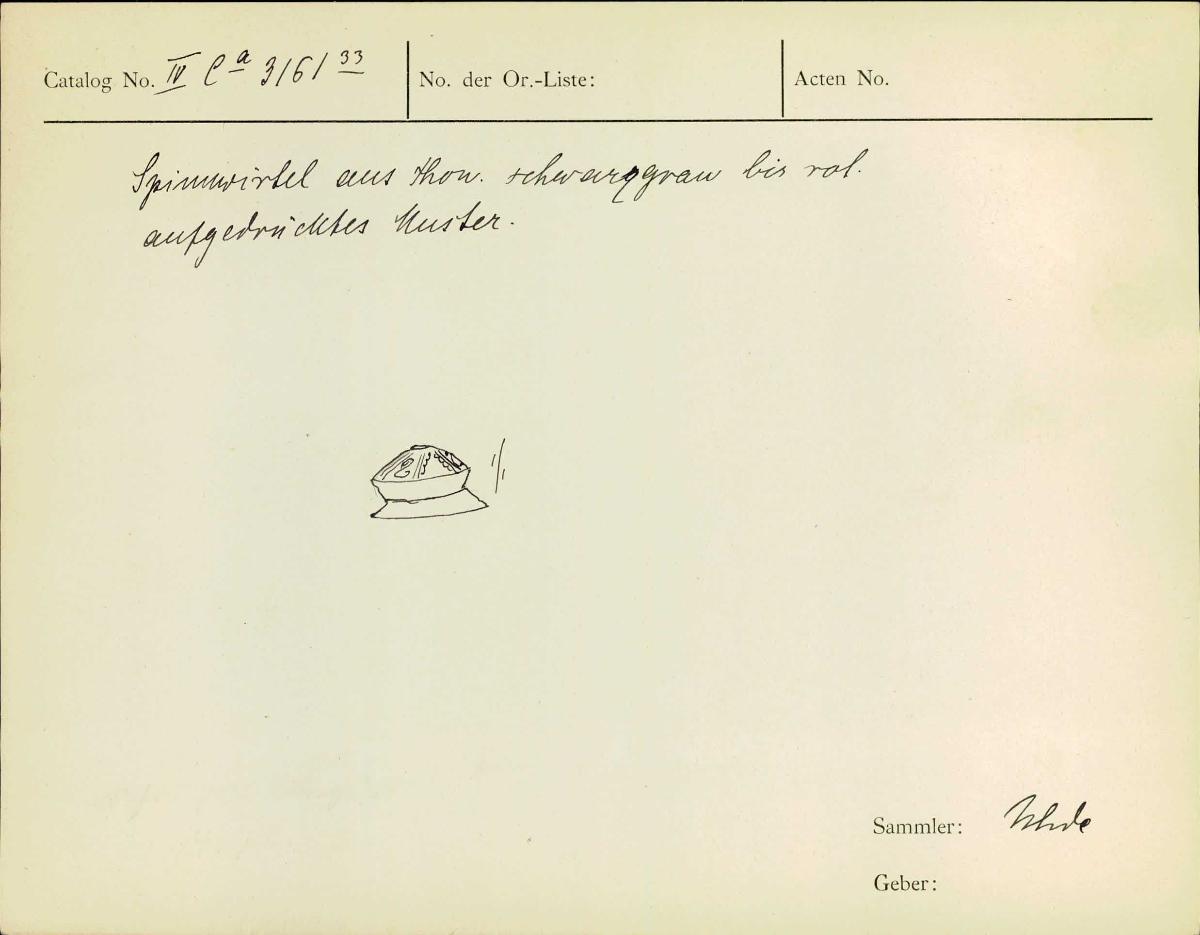 Catalog No. IV Ca 3161 33
No. der Or.-Liste:
Acten No.
Spinnwirtel aus Thon. schwarzgrau bis rot.
aufgedrücktes Muster.
1/1
Sammler: Uhde
Geber: